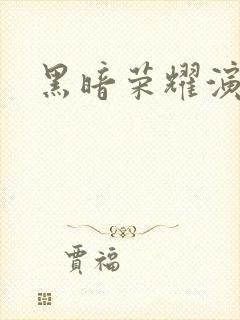 黑暗荣耀演
贾福